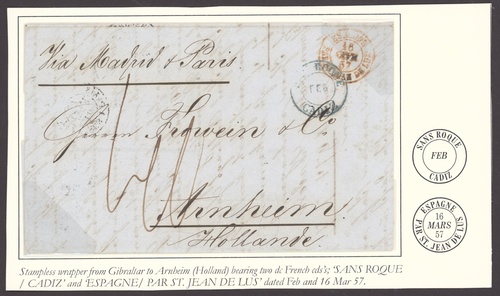 Via Madrid & Paris
16
57
FEB
CADIZ
Herrn Frowein & Co
Arnheim
Hollande.
SANS ROQUE
FEB
CADIZ
ESPAGNE
16
MARS
57
PAR ST. JEAN DE LUS
Stampless wrapper from Gibraltar to Arnheim (Holland) bearing two dc French cds's; 'SANS ROQUE
/ CADIZ' and 'ESPAGNE/ PAR ST. JEAN DE LUS' dated Feb and 16 Mar 57.